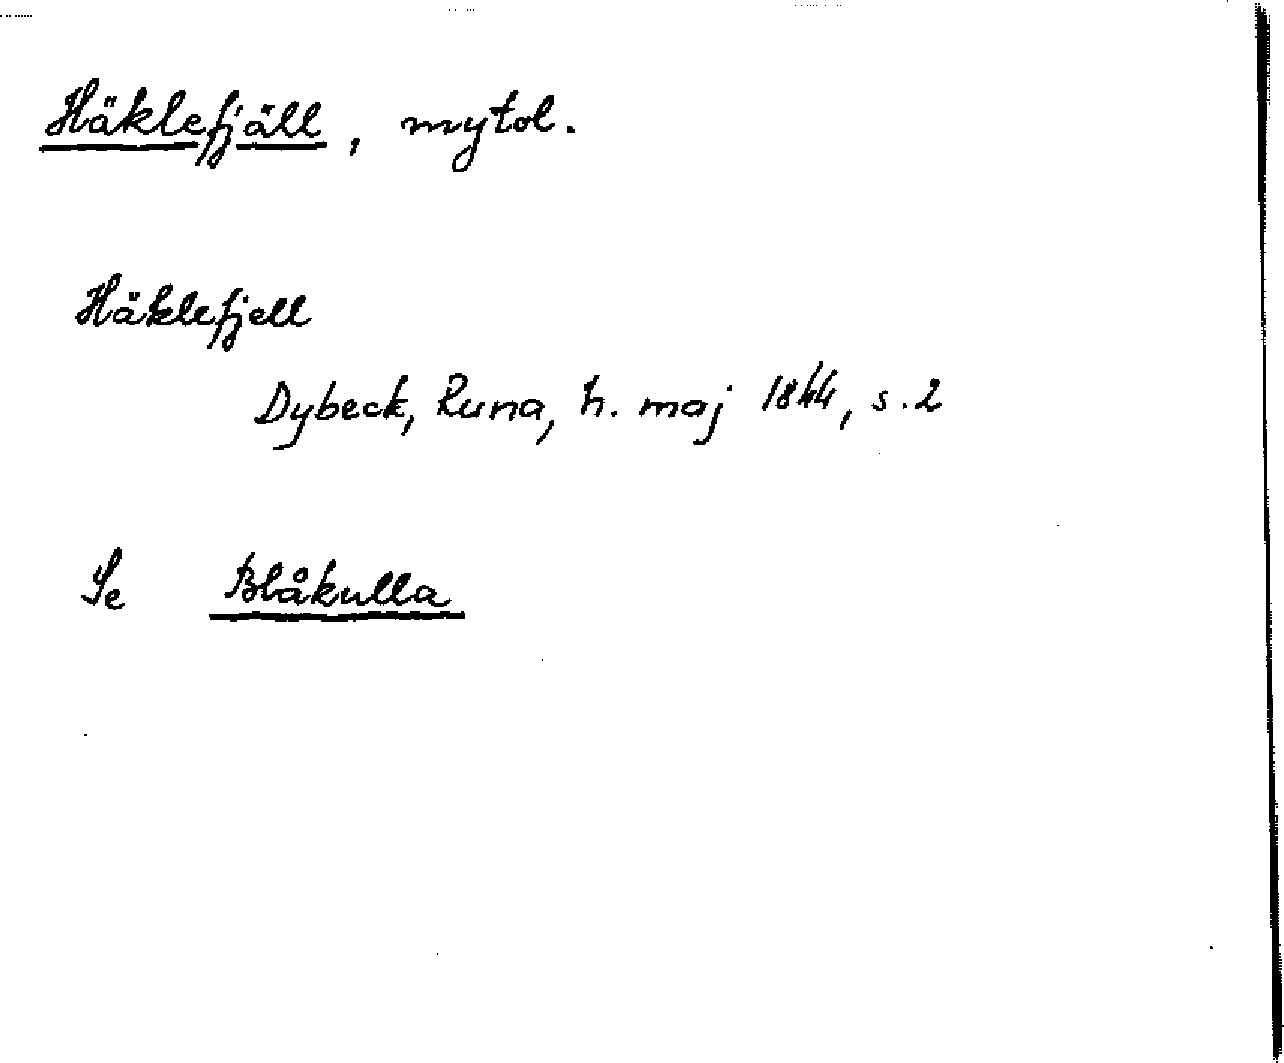 Häklefjäll, mytol.
Häklefjell
Dybeck, Runa, h. maj 1844, s. 2
Se Blåkulla